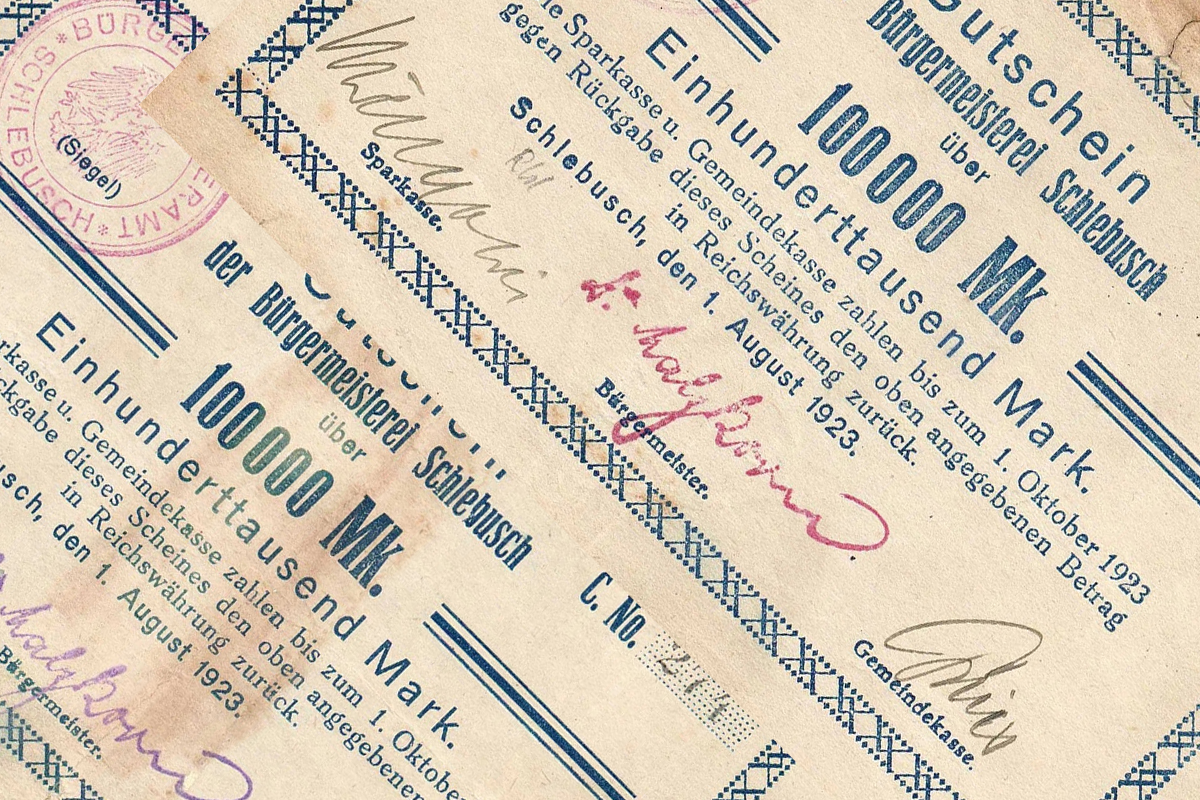 Gutschein
über
Bürgermeisterei Schlebusch
100000 Mk.
Einhunderttausend Mark.
Die Sparkasse u. Gemeindekasse zahlen bis zum 1. Oktober 1923
gegen Rückgabe dieses Scheines den oben angegebenen Betrag
in Reichswährung zurück.
Schlebusch, den 1. August 1923.
Sparkasse.
Bürgermeister.
Gemeindekasse.
BÜRGERMEISTERAMT
SCHLEBUSCH
(Siegel)
der Bürgermeisterei Schlebusch
über
100000 Mk.
C. No.
Einhunderttausend Mark.
Sparkasse u. Gemeindekasse zahlen bis zum 1. Oktober
Rückgabe dieses Scheines den oben angegebenen
in Reichswährung zurück.
Schlebusch, den 1. August 1923.
Bürgermeister.